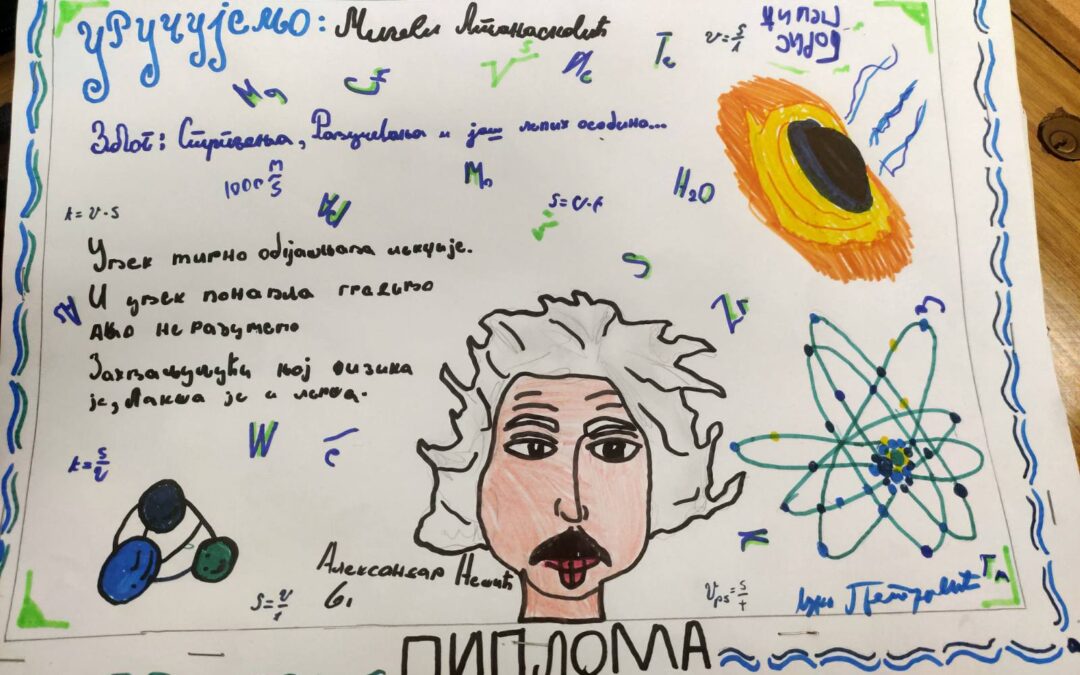 уручујемо: Милени Атанасковић
Tc
v=s/t
БОРИС
Mg
Због: Стрпљења, Разумевања и још лепих особина...
1000 m/s
Mn
H₂O
t=v·s
s=v·t
Увек мирно објашњава лекције.
И увек понавља градиво
ако не разумемо
Захваљујући њој физика
је, лакша је и лепша.
S
Zr
As
W
t=s/v
K
Александар Нешић
6₁
s=v/t
Tm
Петровић
ДИПЛОМА